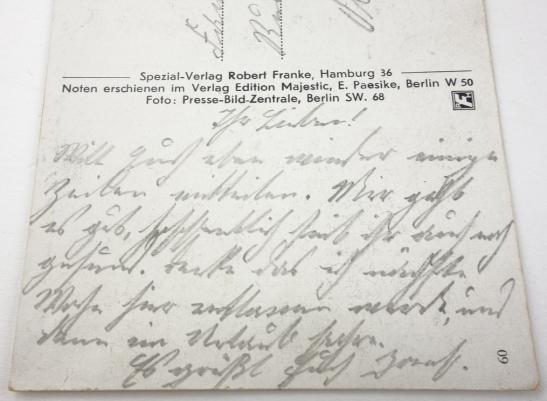 Spezial-Verlag Robert Franke, Hamburg 36
Noten erschienen im Verlag Edition Majestic, E. Paesike, Berlin W 50
Foto: Presse-Bild-Zentrale, Berlin SW. 68
Ihr Lieben!
Will Euch eben wieder einige
Zeilen mitteilen. Mir geht
es gut, hoffentlich seid ihr auch noch
gesund. denke das ich nächste
Woche hier entlassen werde und
dann in Urlaub fahre.
Es grüßt Euch
60